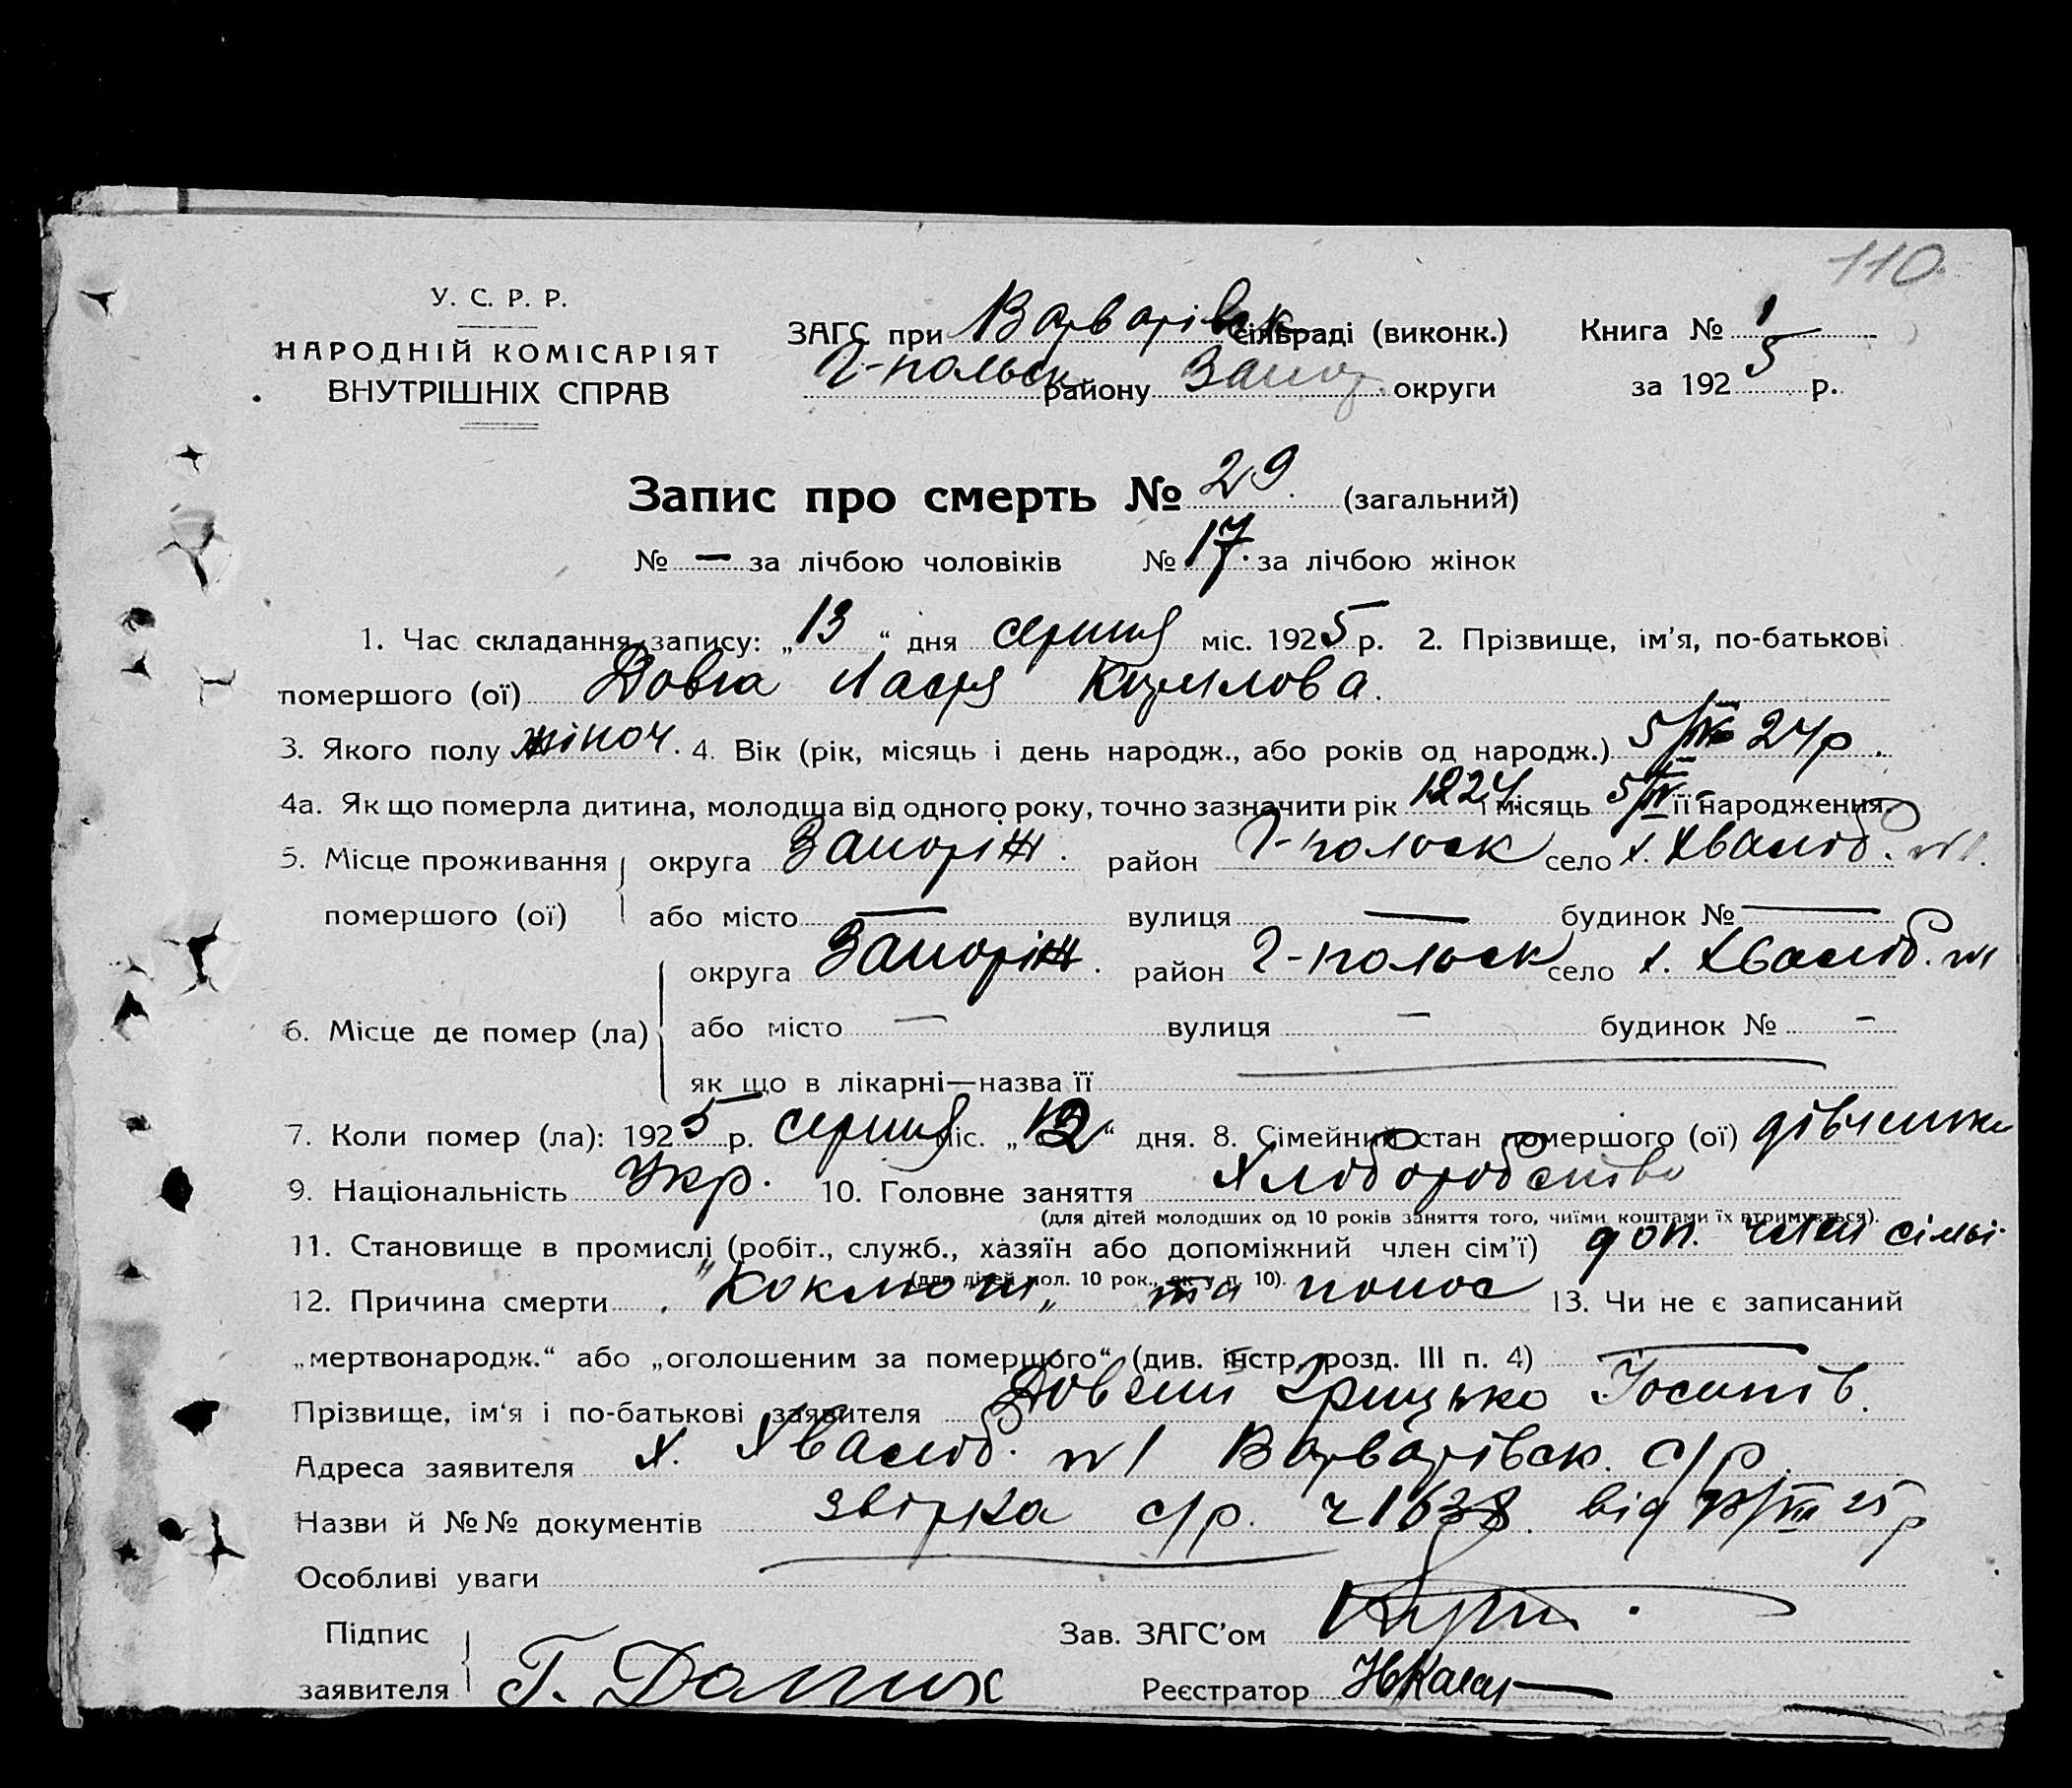 110
У. С. Р. Р.
НАРОДНІЙ КОМІСАРІЯТ
ВНУТРІШНІХ СПРАВ
ЗАГС при Варварівськ сільраді (виконк.)
Г-польск району Запор. округи
Книга № 1
за 1925 р.
Запис про смерть № 29. (загальний)
№ — за лічбою чоловіків № 17. за лічбою жінок
1. Час складання запису: „13“ дня серпня міс. 1925 р. 2. Прізвище, ім'я, по-батькові
помершого (ої) Довга Кирилова.
3. Якого полу жіноч. 4. Вік (рік, місяць і день народж., або років од народж.) 24 р.
4а. Як що померла дитина, молодша від одного року, точно зазначити рік 1924 і місяць її народження.
5. Місце проживання округа Запоріж. район Г-польск село х. №1.
помершого (ої) або місто — вулиця — будинок № —
6. Місце де помер (ла) округа Запоріж. район Г-польск село х. №1
або місто — вулиця — будинок № —
як що в лікарні—назва її —
7. Коли помер (ла): 1925 р. серпня міс. „12“ дня. 8. Сімейний стан помершого (ої) дівчинка
9. Національність Укр. 10. Головне заняття Хліборобство
(для дітей молодших од 10 років заняття того, чиїми коштами їх втримується).
11. Становище в промислі (робіт., служб., хазяїн або допоміжний член сім'ї) доп. член сімьі
(для дітей мол. 10 рок., як у п. 10).
12. Причина смерти „Коклюш„ та понос 13. Чи не є записаний
„мертвонародж.“ або „оголошеним за помершого“ (див. інстр. розд. III п. 4) —
Прізвище, ім'я і по-батькові заявителя Довгий Грицько Йосипів.
Адреса заявителя х. №1 Варварівськ. с/р.
Назви й №№ документів с/р. від 25 р
Особливі уваги —
Підпис
заявителя Г.
Зав. ЗАГС'ом
Реєстратор